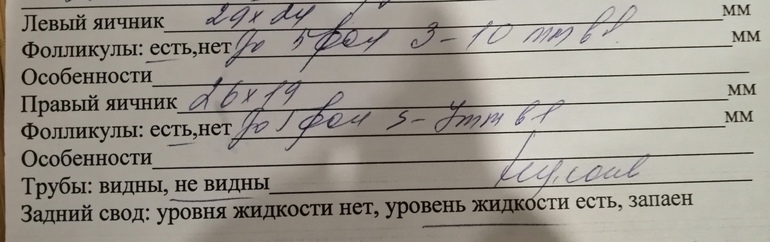 Левый яичник 29 х 24 мм
Фолликулы: есть,нет До 5 фол 3 - 10 mm в 1 мм
Особенности
Правый яичник 26 х 19 мм
Фолликулы: есть,нет До 5 фол 5 - 7mm в 1 мм
Особенности
Трубы: видны, не видны
Задний свод: уровня жидкости нет, уровень жидкости есть, запаен